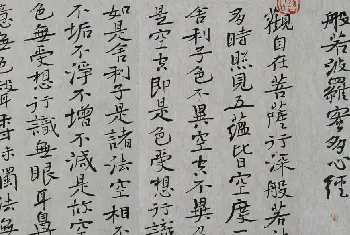 般若波羅蜜多心經
觀自在菩薩行深般若
多時照見五蘊皆空度一
舍利子色不異空々不異
是空々即是色受想行識
如是舍利子是諸法空相不
不垢不淨不增不減是故空
色無受想行識無眼耳鼻
意無色聲香味觸法無